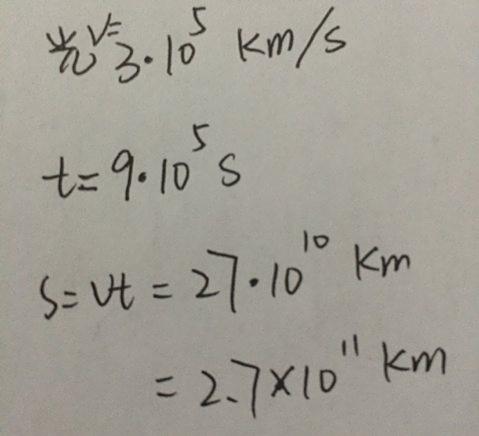 光v=3·10⁵ km/s
t=9·10⁵ s
s=vt=27·10¹⁰ km
=2.7×10¹¹ km